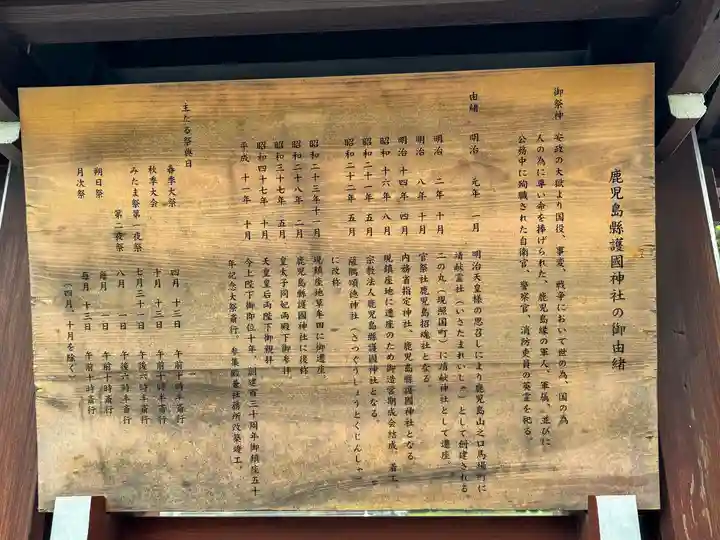 鹿児島縣護國神社の御由緒
御祭神 安政の大獄より国役、事変、戦争において世の為、国の為
人の為に尊い命を捧げられた、鹿児島縁の軍人、軍属、並びに
公務中に殉職された自衛官、警察官、消防吏員の英霊を祀る。
由緒 明治 元年 一月 明治天皇様の思召しにより鹿児島山之口馬場町に
靖献霊社(いさたまれいしゃ)として創建される
明治 二年 十月 二の丸(現照国町)に靖献神社として遷座。
明治 八年 十月 官祭社鹿児島招魂社となる
明治 十四年 四月 内務省指定神社、鹿児島縣護國神社となる
昭和 十六年 八月 現鎮座地に遷座のため御造営期成会結成、着工。
昭和二十一年 五月 宗教法人鹿児島縣護國神社となる。
昭和二十二年 五月 薩隅頌徳神社(さつぐうしょうとくじんしゃ)
に改称
昭和二十三年十一月 現鎮座地草牟田に御遷座。
昭和二十八年 二月 鹿児島縣護國神社に復称
昭和三十七年 五月 皇太子同妃両殿下御参拝
昭和四十七年 十月 天皇皇后両陛下御親拝
平成 十一年 十月 今上陛下御即位十年、創建百三十周年御鎮座五十
年記念大祭斎行、参集殿兼社務所改築竣工。
主たる祭典日
春季大祭 四月 十三日 午前十時半斎行
秋季大会 十月 十三日 午前十時半斎行
みたま祭第一夜祭 七月三十一日 午後六時半斎行
第二夜祭 八月 一日 午後六時半斎行
朔日祭 毎月 一日 午前十時斎行
月次祭 毎月 十三日 午前十時斎行
(四月、十月を除く)